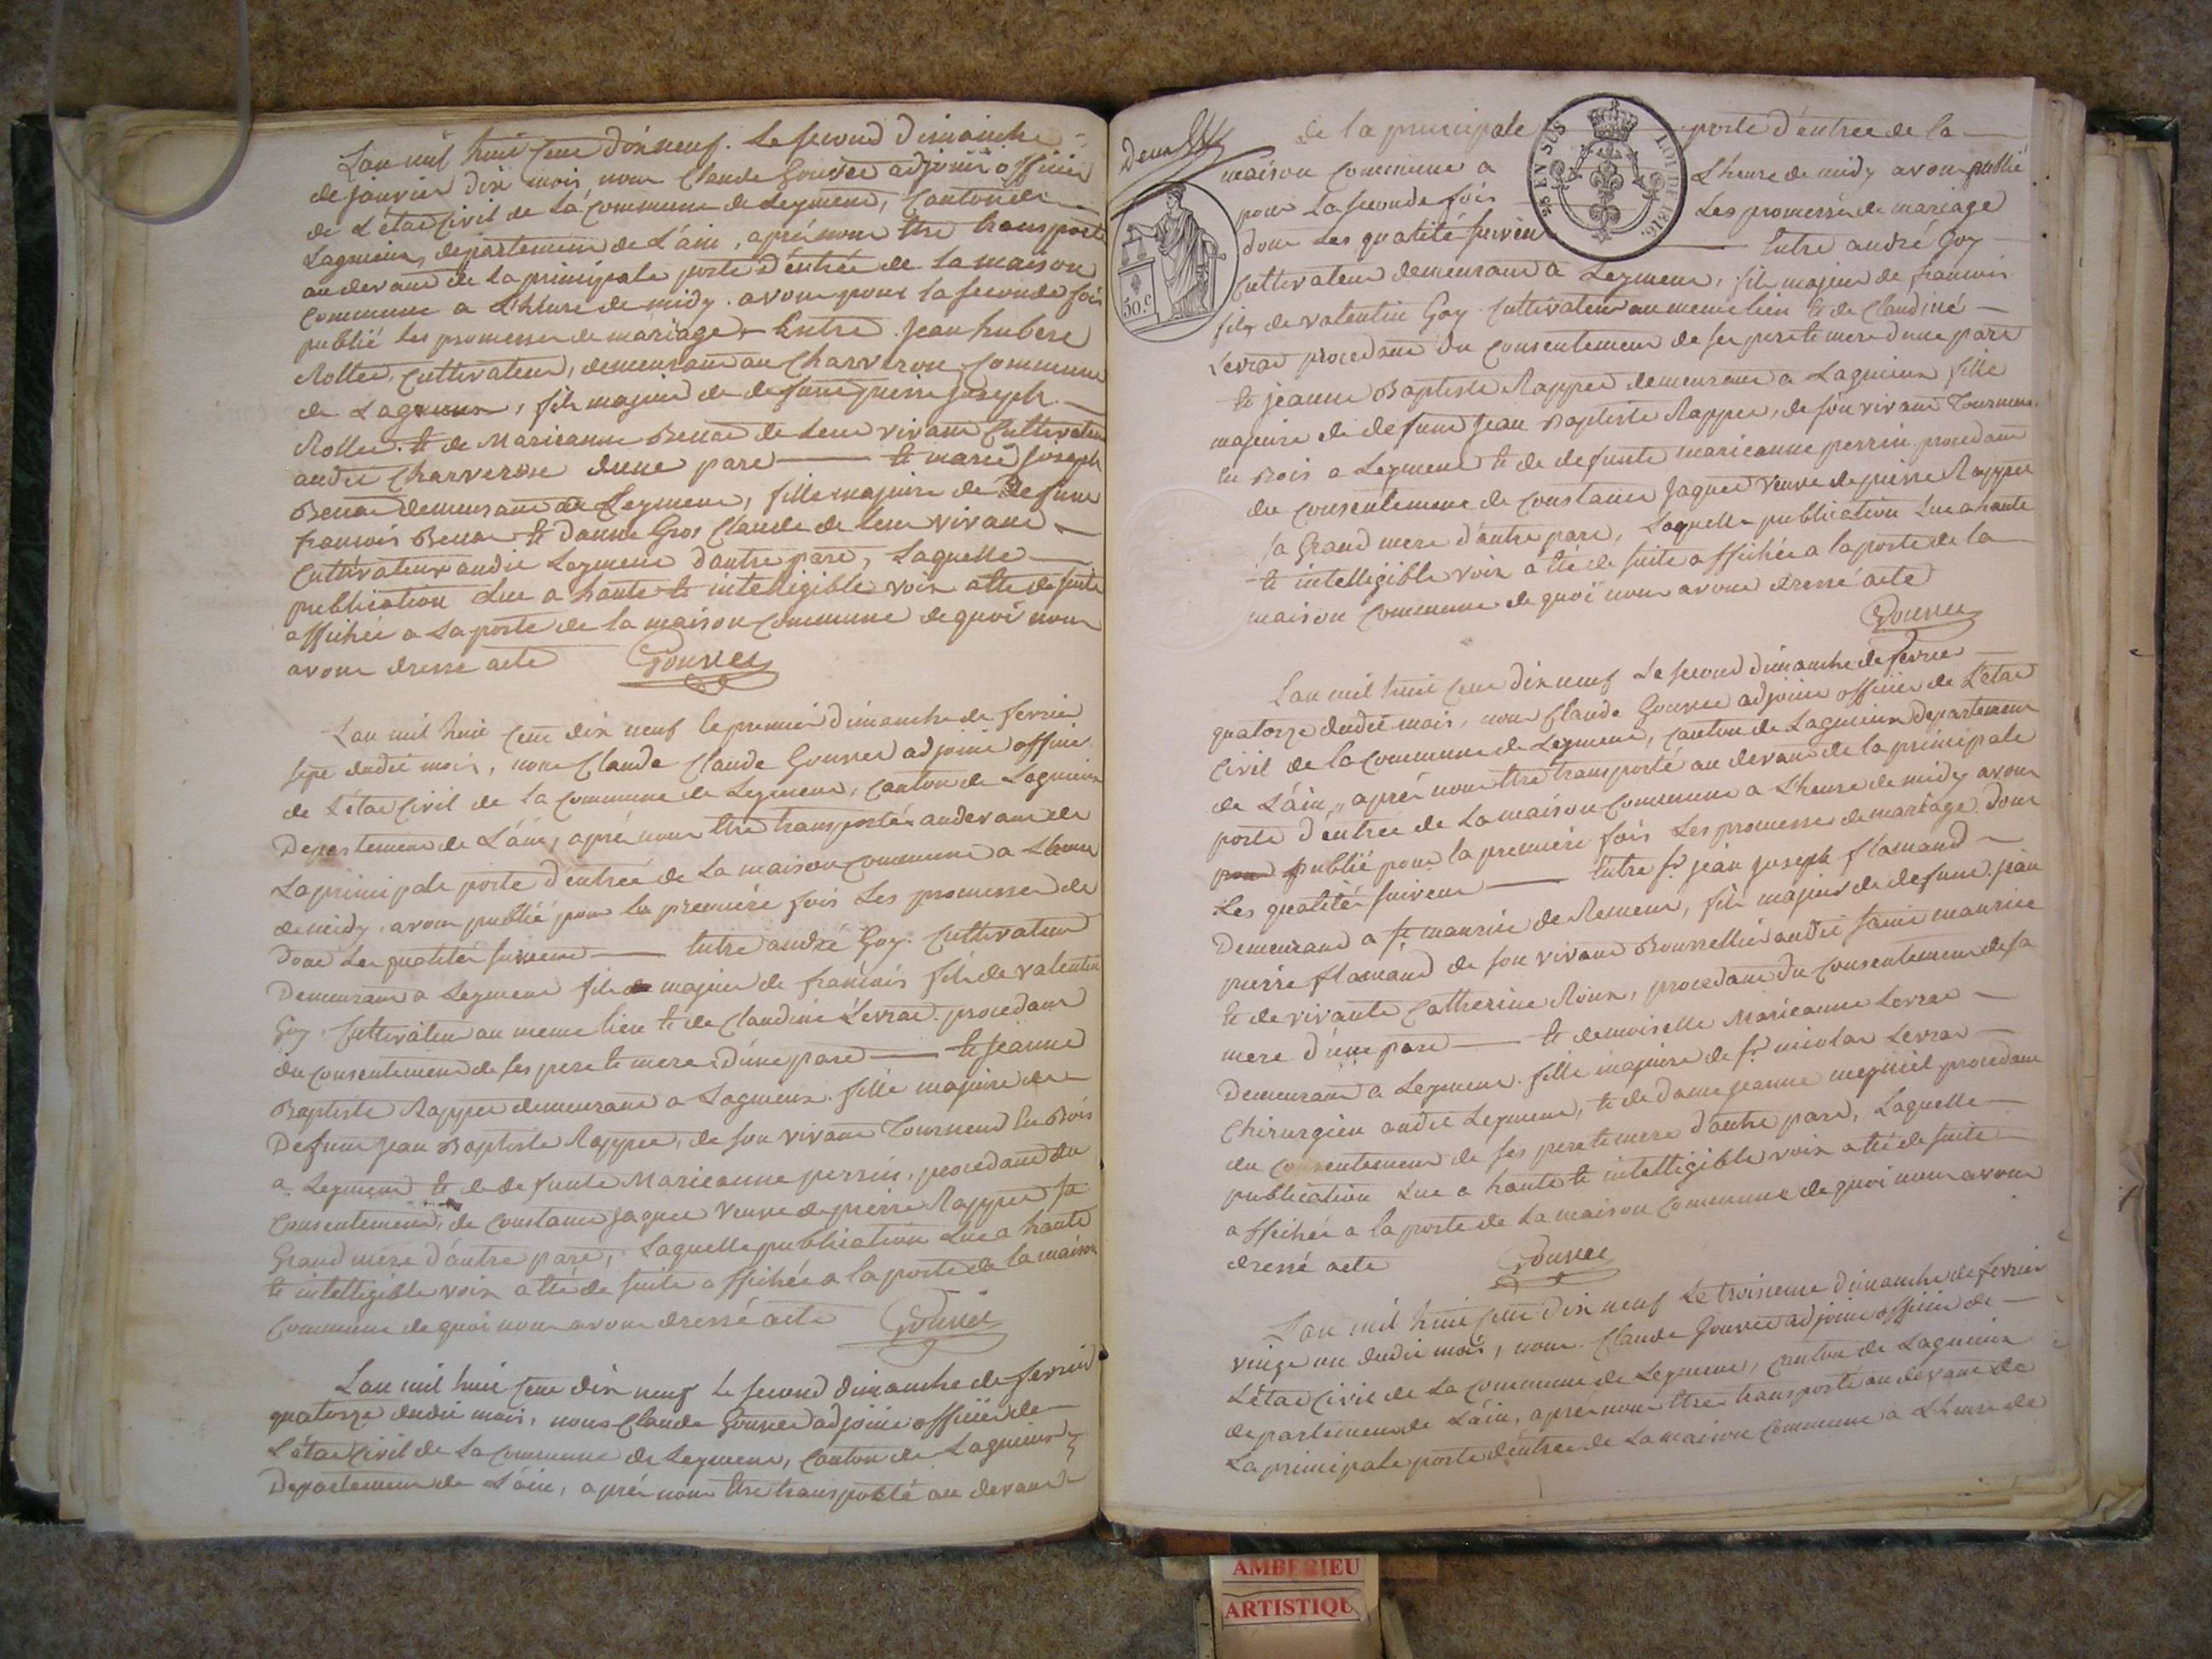 L'an mil huit cent dix neuf. Le second dimanche
de janvier dix mois, nous Claude Gouvet adjoint officier
de L'état Civil de la Commune de Leyment, Canton de
Lagnieux, departement de L'ain, après nous être transporté
au devant de la principale porte d'entrée de la maison
Commune a L'heure de midy. avons pour la seconde fois
publié les promesses de mariage, Entre Jean hubert
Rollet, Cultivateur, demeurant au Charveron, Commune
de Lagnieux, fils majeur de defunt pierre Joseph
Rollet. et de Marieanne Benoz de Leur vivant Cultivateur
audit Charveron d'une part —— et marie Joseph
Benoz demeurant a Leyment, fille majeure de Defunt
francois Benoz et d'anne Gros Claude de leur vivant
Cultivateur audit Leyment d'autre part, Laquelle
publication Lue a haute et intelligible voix a été de suite
affichée a La porte de la maison Commune de quoi nous
avons dressé acte Gouvet
L'an mil huit cent dix neuf le premier dimanche de fevrier
sept dudit mois, nous Claude Claude Gouvet adjoint officier
de L'état Civil de la Commune de Leyment, Canton de Lagnieux
Departement de L'ain, après nous être transporté au devant de
La principale porte d'entrée de La maison Commune a L'heure
de midy, avons publié pour la premiere fois Les promesses de
dont Les qualités suivent —— Entre andré Goy. Cultivateur
Demeurant a Leyment fils majeur de francois fils de valentin
Goy, Cultivateur au meme lieu et de Claudine Levrat. procedant
du consentement de ses pere et mere d'une part —— et jeanne
Baptiste Rappet demeurant a Lagnieux. fille majeure de
Defunt jean Baptiste Rappet, de son vivant Tourneur En Bois
a Leyment et de defunte Marieanne perrin, procedant du
Consentement, de Constance Jaquet veuve de pierre Rappet sa
Grand mere d'autre part, Laquelle publication Lue a haute
et intelligible voix a été de suite affichée a la porte de la maison
Commune de quoi nous avons dressé acte Gouvet
L'an mil huit cent dix neuf le second dimanche de fevrier
quatorze dudit mois, nous Claude Gouvet adjoint officier de
L'état Civil de La Commune de Leyment, Canton de Lagnieux
Departement de L'ain, après nous être transporté au devant
de la principale porte d'entrée de la
maison Commune a L'heure de midy avons publié
pour La seconde fois Les promesses de mariage
dont Les qualité suivent —— Entre andré Goy
Cultivateur demeurant a Leyment, fils majeur de francois
fils de valentin Goy Cultivateur au meme lieu et de Claudine
Levrat procedant du Consentement de ses pere et mere d'une part
et jeanne Baptiste Rappet demeurant a Lagnieux fille
majeure de defunt jean Baptiste Rappet, de son vivant Tourneur
En Bois a Leyment et de defunte marieanne perrin procedant
du consentement de Constance Jaquet veuve de pierre Rappet
sa Grand mere d'autre part, Laquelle publication Lue a haute
et intelligible voix a été de suite affichée a la porte de la
maison Commune de quoi nous avons dressé acte
Gouvet
L'an mil huit cent dix neuf Le second dimanche de fevrier
quatorze dudit mois, nous Claude Gouvet adjoint officier de L'état
Civil de la Commune de Leyment, Canton de Lagnieux Departement
de L'ain, après nous être transporté au devant de la principale
porte d'entrée de La maison Commune a L'heure de midy avons
pour publié pour la premiere fois Les promesse de mariage dont
Les qualités suivent —— Entre sr. jean joseph flamand
Demeurant a St. maurice de Remens, fils majeur de defunt jean
pierre flamand de son vivant Bourrellier audit saint maurice
et de vivante Catherine Roux, procedant du consentement de sa
mere d'une part —— et demoiselle Marieanne Levrat
Demeurant a Leyment fille majeure de sr. nicolas Levrat
Chirurgien audit Leyment, et de dame jeanne procedant
du consentement de ses pere et mere d'autre part, Laquelle
publication Lue a haute et intelligible voix a été de suite
affichée a la porte de La maison Commune de quoi nous avons
dressé acte Gouvet
L'an mil huit cent dix neuf Le troisieme dimanche de fevrier
vingt un dudit mois, nous Claude Gouvet adjoint officier de
L'état Civil de La Commune de Leyment, Canton de Lagnieux
departement de L'ain, après nous être transporté au devant de
La principale porte d'entrée de La maison Commune a L'heure de
50. c
25 EN SUS
LOI DE 1816.
AMBERIEU
ARTISTIQU